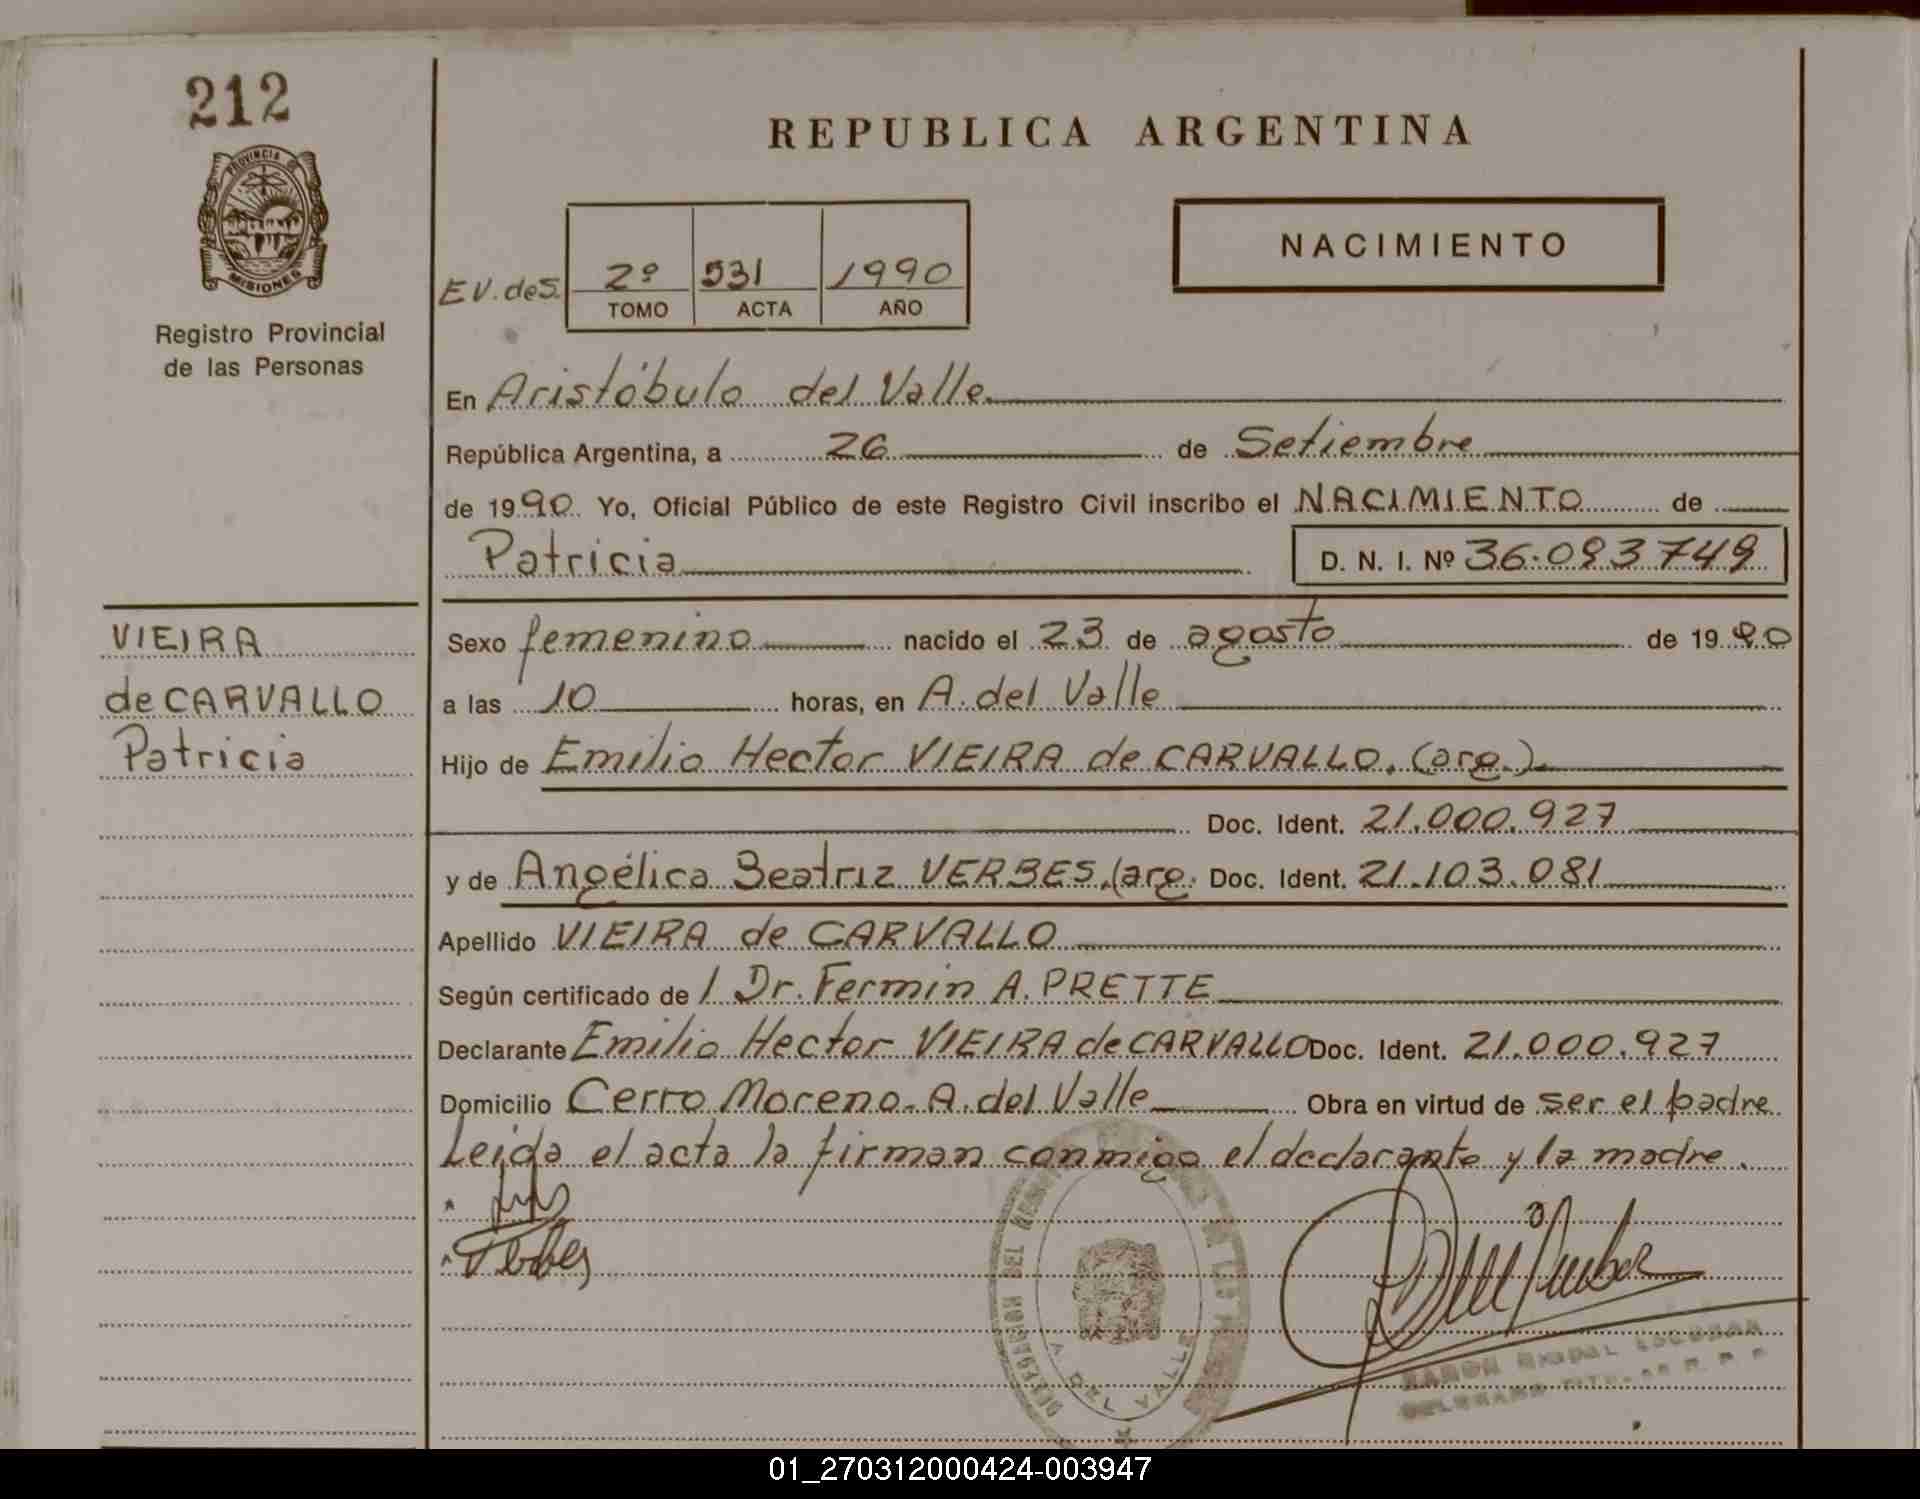 212
PROVINCIA DE
MISIONES
Registro Provincial
de las Personas
VIEIRA
de CARVALLO
Patricia
REPUBLICA ARGENTINA
NACIMIENTO
EV. de S. 2º 531 1990
TOMO ACTA AÑO
En Aristóbulo del Valle
República Argentina, a 26 de Setiembre
de 1990 Yo, Oficial Público de este Registro Civil inscribo el NACIMIENTO de
Patricia D. N. I. Nº 36.093749
Sexo femenino nacido el 23 de agosto de 1990
a las 10 horas, en A. del Valle
Hijo de Emilio Hector VIEIRA de CARVALLO. (arg.).
Doc. Ident. 21.000.927
y de Angélica Beatriz VERBES. (arg. Doc. Ident. 21.103.081
Apellido VIEIRA de CARVALLO
Según certificado de / Dr. Fermin A. PRETTE
Declarante Emilio Hector VIEIRA de CARVALLO Doc. Ident. 21.000.927
Domicilio Cerro Moreno - A. del Valle Obra en virtud de ser el padre
Leida el acta la firman conmigo el declarante y la madre.
A. DEL VALLE
01_270312000424-003947